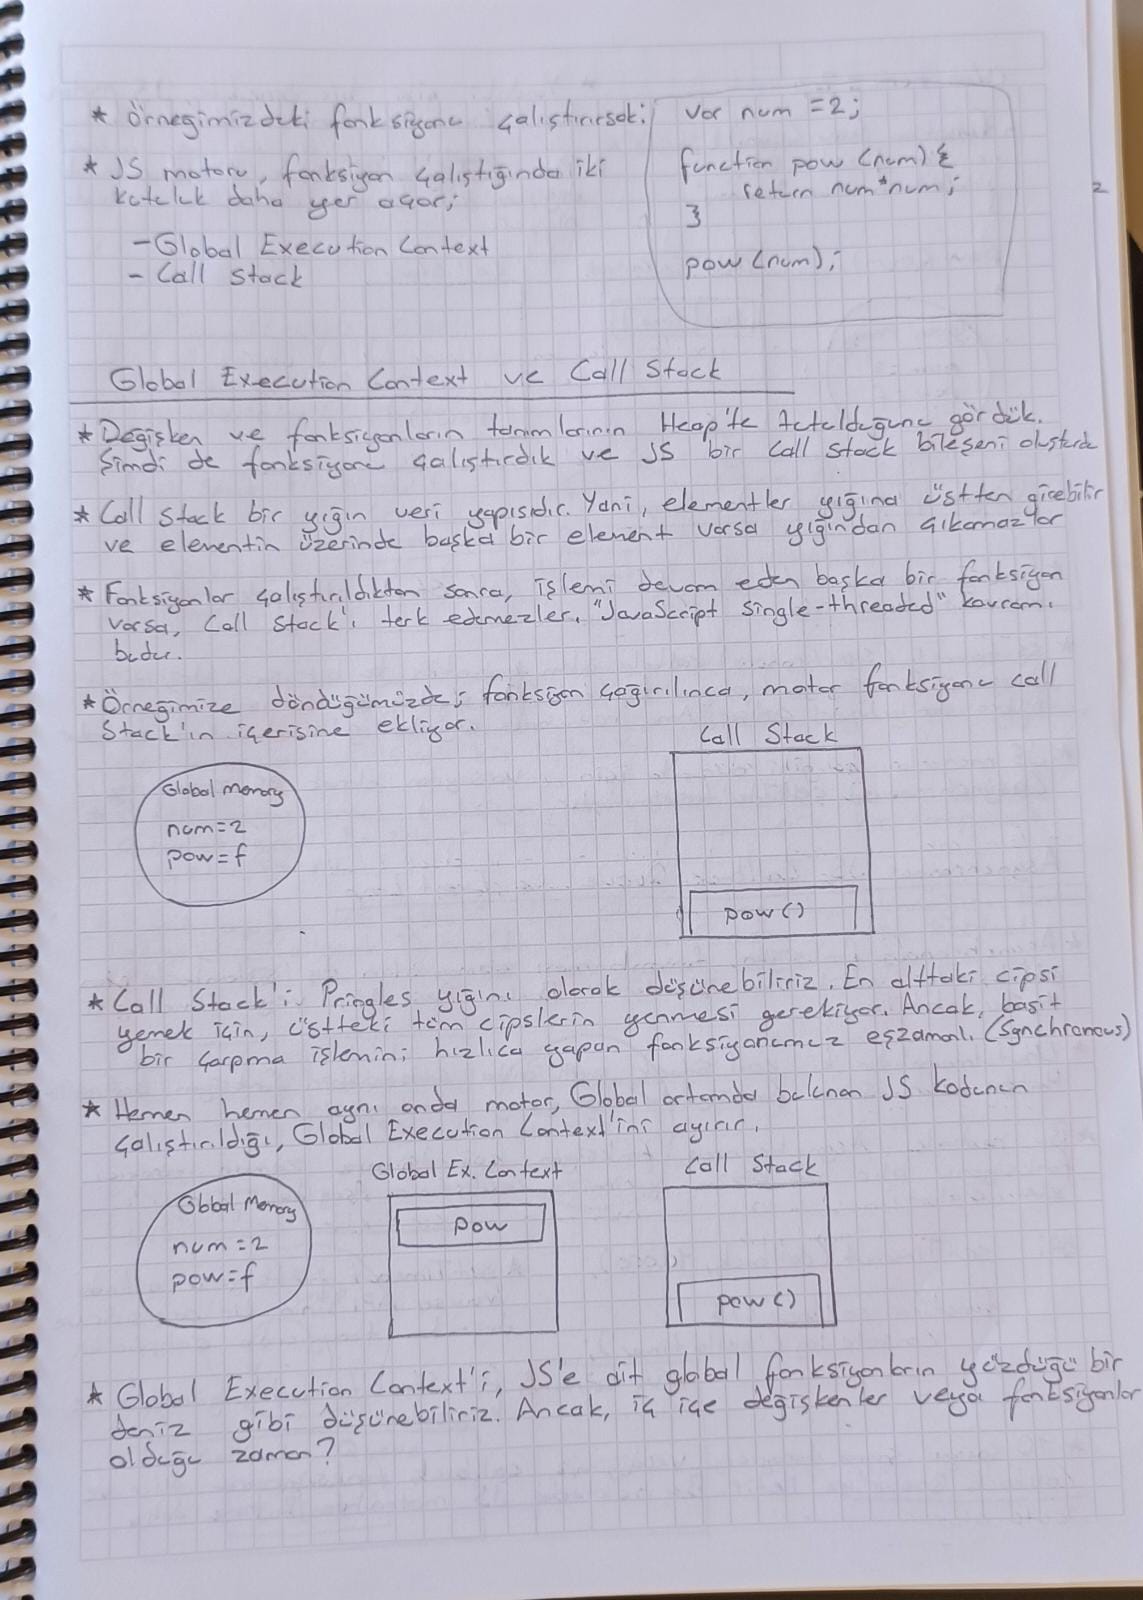 * Örneğimizdeki fonksiyonu çalıştırırsak;
* JS motoru, fonksiyon çalıştığında iki
kutuluk daha yer açar;
- Global Execution Context
- Call Stack
var num = 2;
function pow (num) {
return num*num;
}
pow (num);
2
Global Execution Context ve Call Stack
* Değişken ve fonksiyonların tanımlarının Heap'te tutulduğunu gördük.
Şimdi de fonksiyonu çalıştırdık ve JS bir Call Stack bileşeni oluşturdu
* Call Stack bir yığın veri yapısıdır. Yani, elementler yığına üstten girebilir
ve elementin üzerinde başka bir element varsa yığından çıkamazlar
* Fonksiyonlar çalıştırıldıktan sonra, işlemi devam eden başka bir fonksiyon
varsa, Call Stack'i terk edemezler. "JavaScript single-threaded" kavramı
budur.
* Örneğimize döndüğümüzde; fonksiyon çağırılınca, motor fonksiyonu call
Stack'in içerisine ekliyor.
Global Memory
num=2
pow=f
Call Stack
pow()
* Call Stack'i Pringles yığını olarak düşünebiliriz. En alttaki cipsi
yemek için, üstteki tüm cipslerin yenmesi gerekiyor. Ancak, basit
bir çarpma işlemini hızlıca yapan fonksiyonumuz eşzamanlı. (Synchronous)
* Hemen hemen aynı anda motor, Global ortamda bulunan JS kodunun
çalıştırıldığı, Global Execution Context'ini ayırır.
Global Memory
num=2
pow=f
Global Ex. Context
pow
Call Stack
pow()
* Global Execution Context'i, JS'e ait global fonksiyonların yüzdüğü bir
deniz gibi düşünebiliriz. Ancak, iç içe değişkenler veya fonksiyonlar
olduğu zaman?